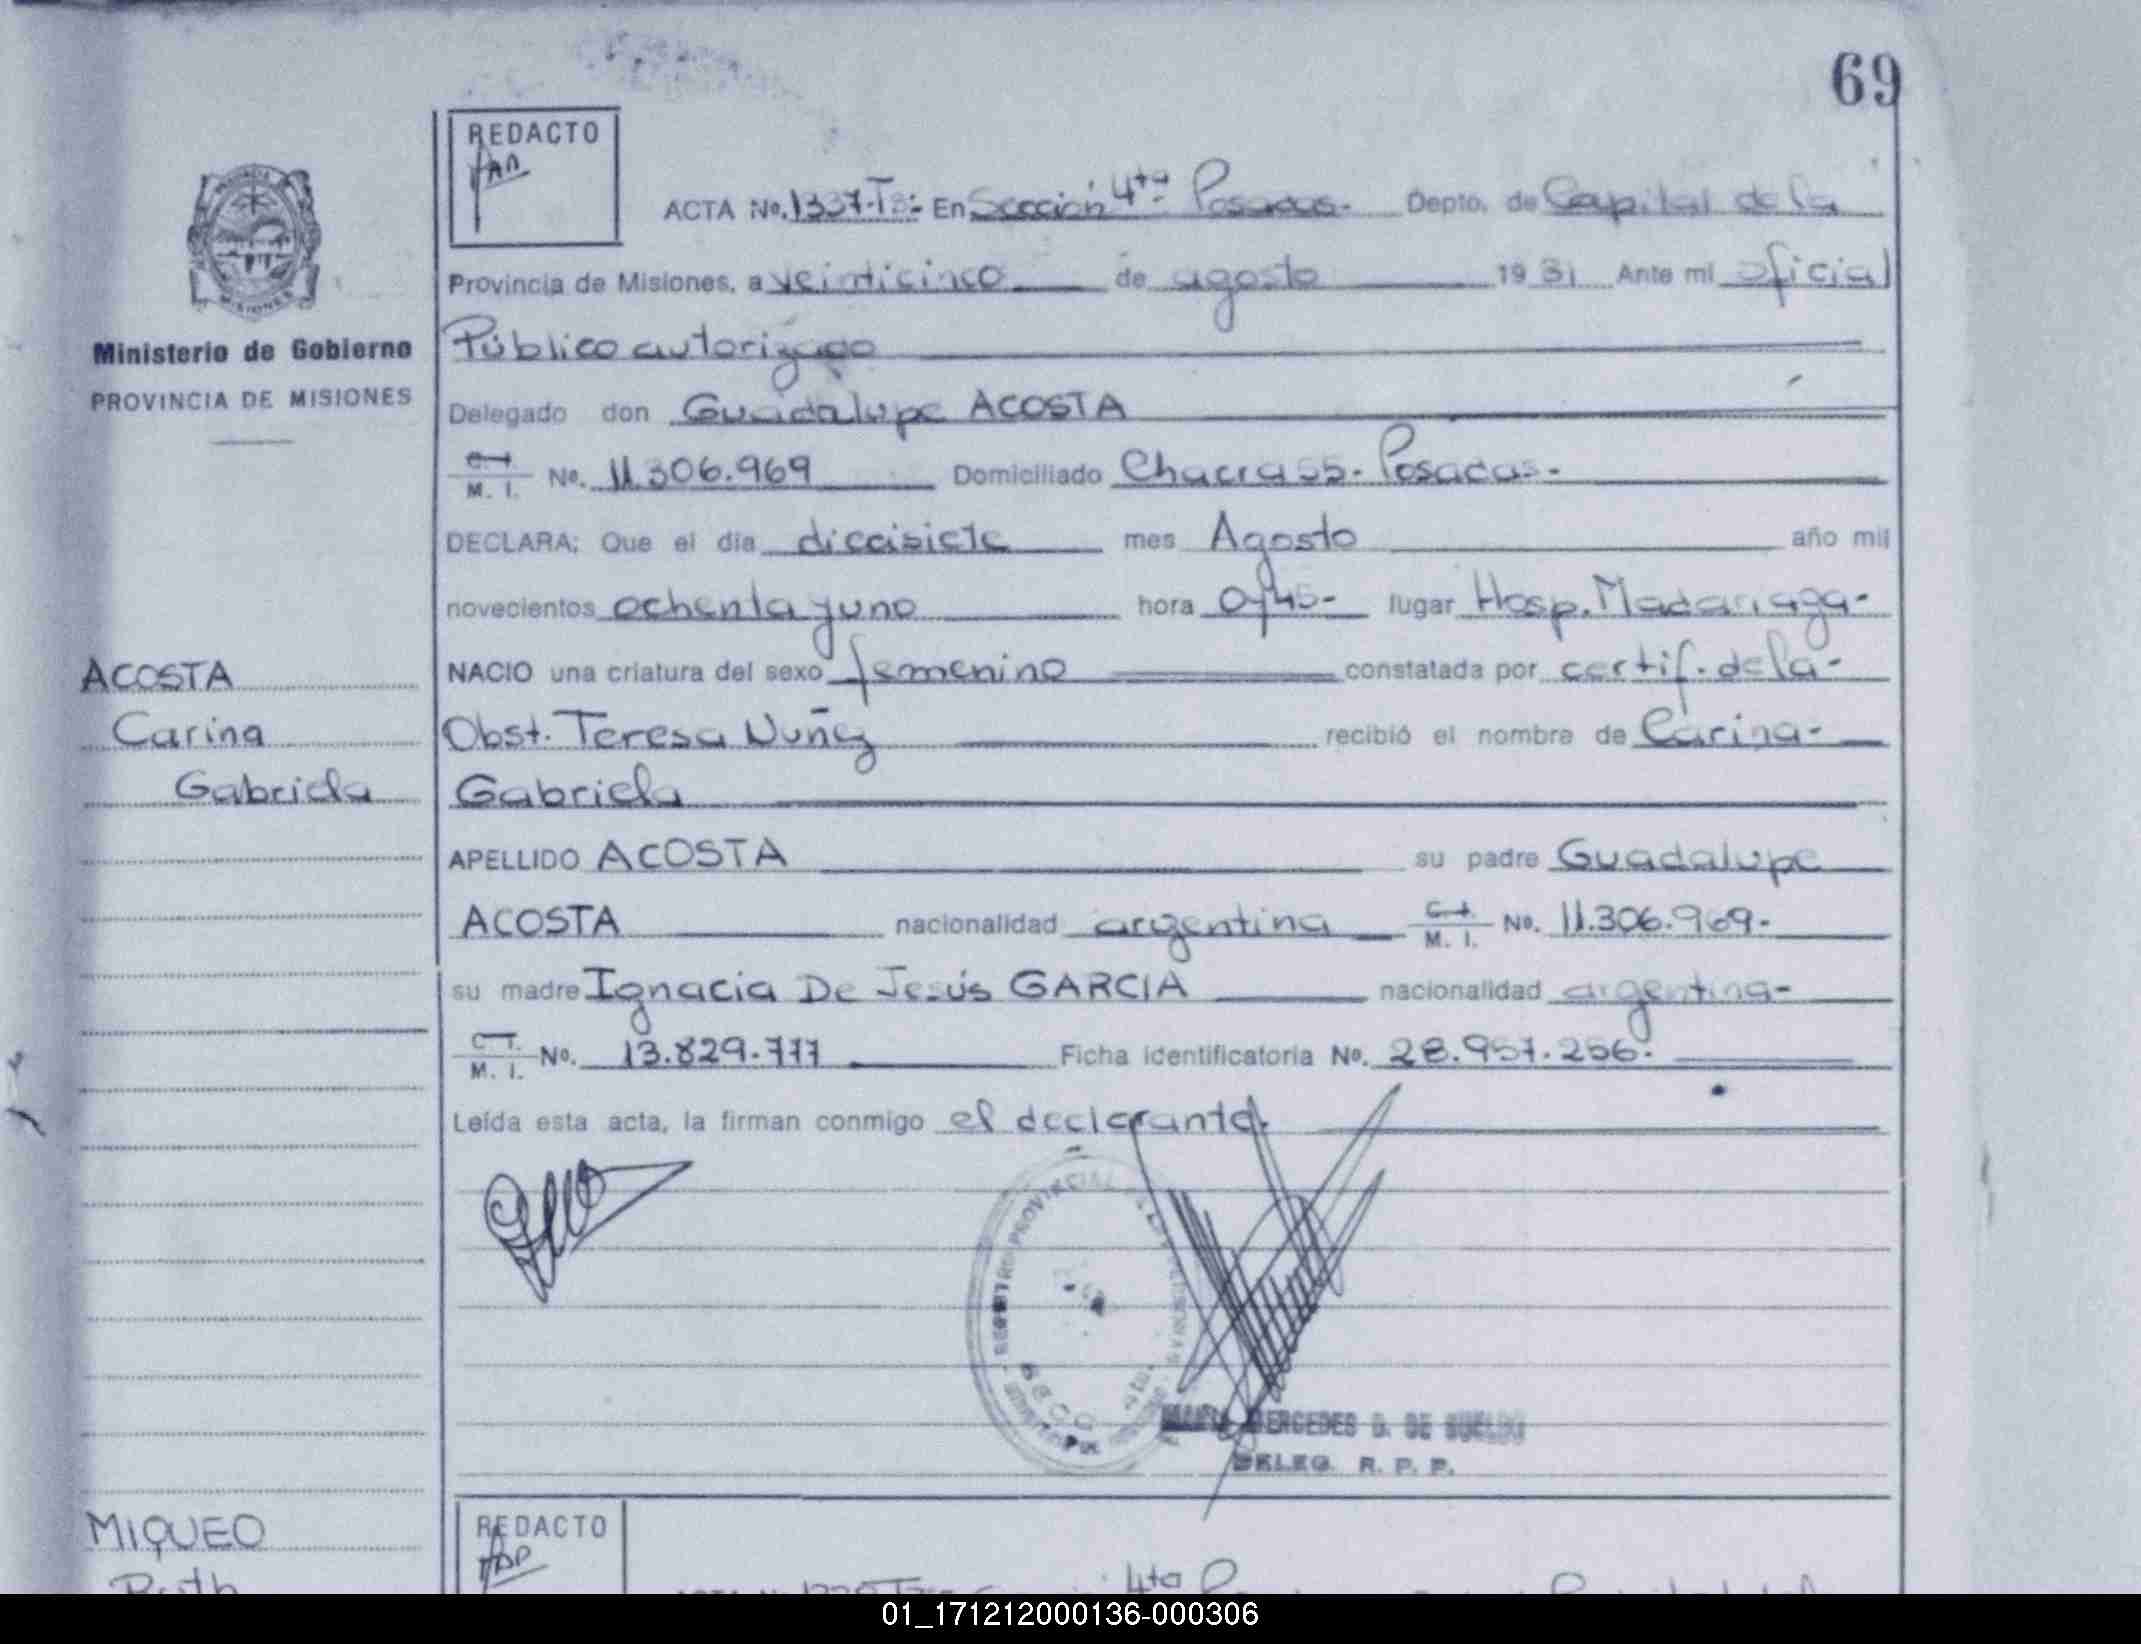 69
REDACTO
ACTA No. 1337-Tº:- En Sección 4ta Posadas.- Depto. de Capital de la
Provincia de Misiones, a veinticinco de agosto 1981 Ante mi oficial
Ministerio de Gobierno
PROVINCIA DE MISIONES
Público autorizado
Delegado don Guadalupe ACOSTA
C. I. M. I. No. 11.306.969 Domiciliado Chacra 55.- Posadas.-
DECLARA: Que el día diecisiete mes Agosto año mil
novecientos ochenta y uno hora 0,45- lugar Hosp. Madariaga-
NACIO una criatura del sexo femenino constatada por certif. de la-
Obst. Teresa Nuñez recibió el nombre de Carina-
Gabriela
ACOSTA
Carina
Gabriela
APELLIDO ACOSTA su padre Guadalupe
ACOSTA nacionalidad argentina C. I. M. I. No. 11.306.969.-
su madre Ignacia De Jesús GARCIA nacionalidad argentina-
C. I. M. I. No. 13.829.777 Ficha identificatoria No. 28.957.256.-
Leída esta acta, la firman conmigo el declarante.
REGISTRO PROVINCIAL
MERCEDES D. DE SUELDO
DELEG. R. P. P.
MIQUEO
Ruth
REDACTO
4ta
01_171212000136-000306